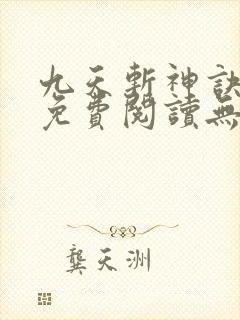 九天斬神訣
免費閱讀無
龔天洲